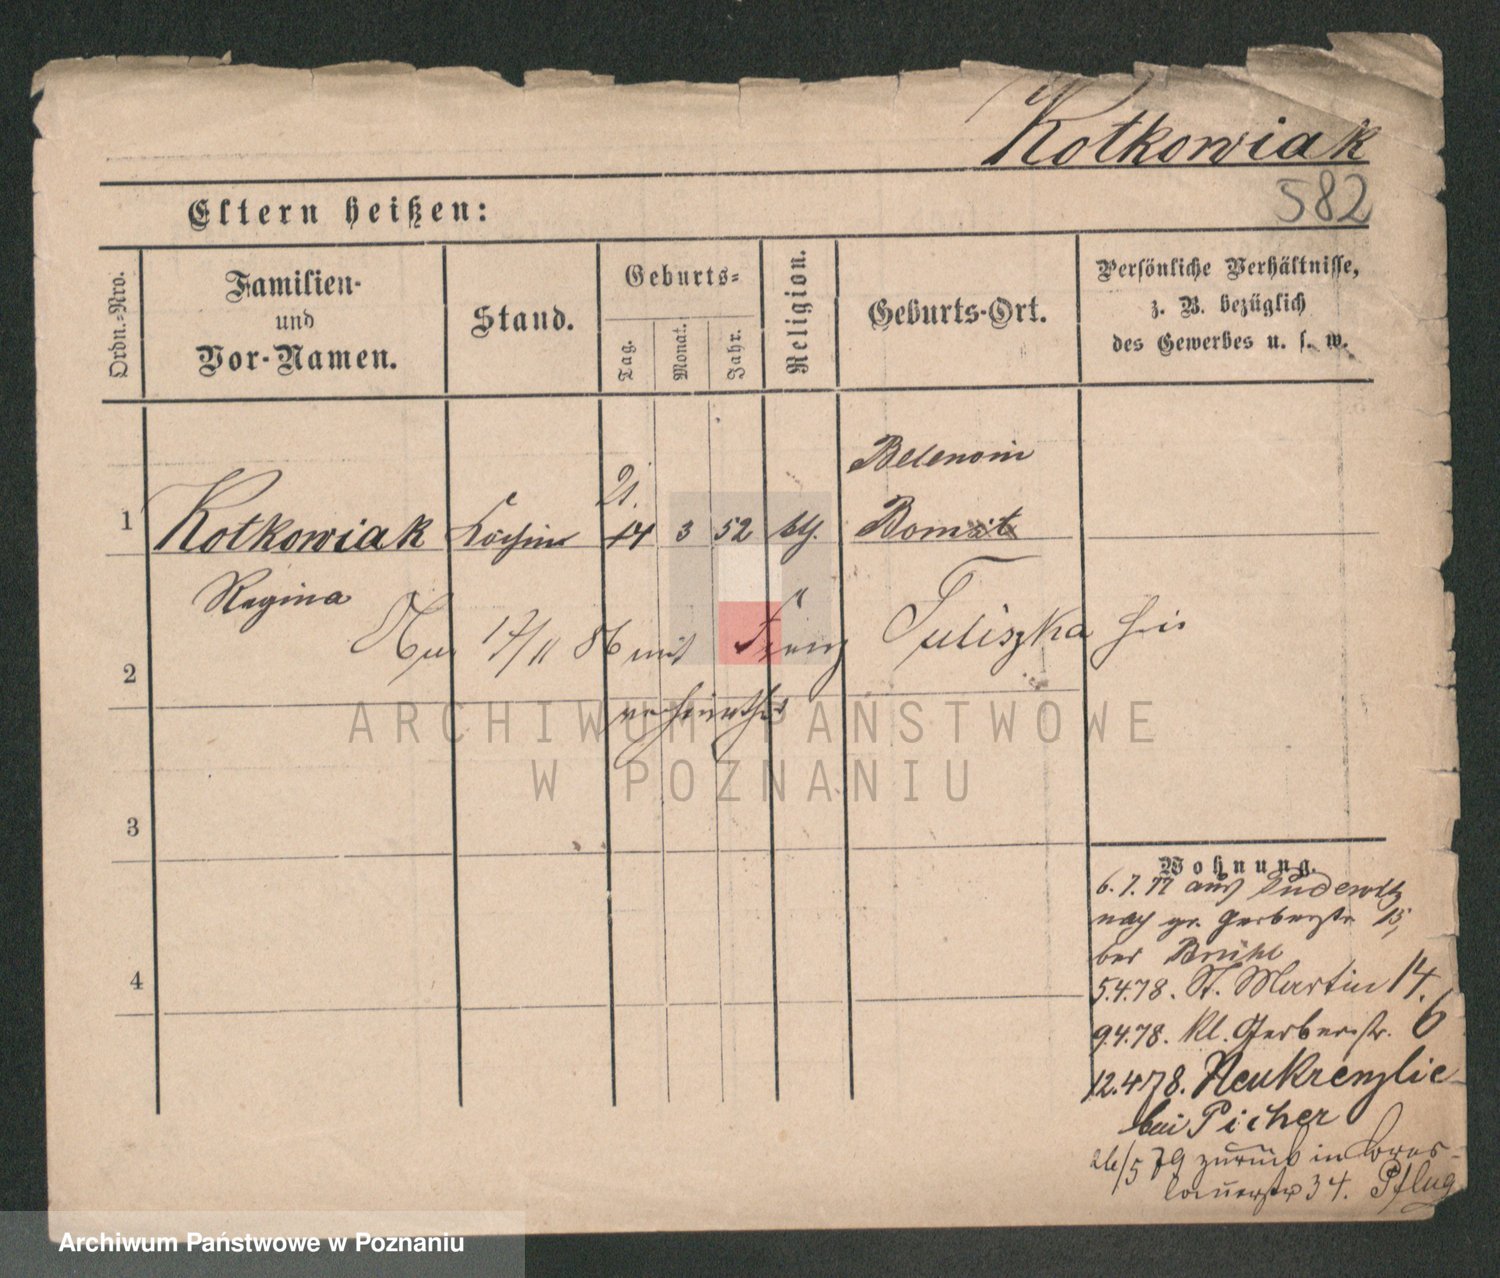 Kotkowiak
582
Eltern heißen:
Ordn.-Nro.
Familien-
und
Vor-Namen.
Stand.
Geburts-
Tag.
Monat.
Jahr.
Religion.
Geburts-Ort.
Persönliche Verhältnisse,
z. B. bezüglich
des Gewerbes u. s. w.
Belencin
21.
1 Kotkowiak Köchin 14 3 52 kth. Bomst
Regina
17/11 86 mit Franz Tuliszka hier
2
verheirathet
ARCHIWUM PAŃSTWOWE
W POZNANIU
3
Wohnung.
6.7.77 aus Pudewitz
nach gr. Gerberstr. 15,
bei Brühl
4
5.4.78. St. Martin 14.
9.4.78. kl. Gerberstr. 6
12.4.78. Neukrenzlie
bei Picher
26/5 79 zurück in Bres-
lauerstr 34. Pflug
Archiwum Państwowe w Poznaniu